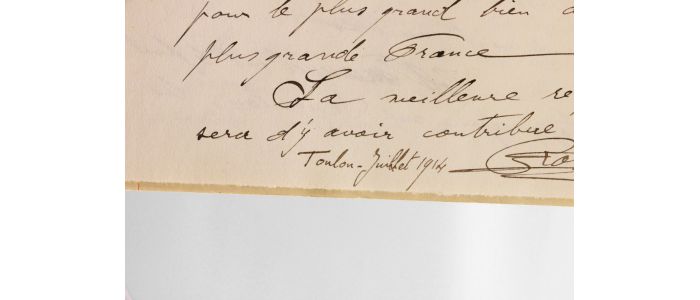 pour le plus grand bien d
plus grande France
La meilleure ré
sera d'y avoir contribué
Toulon - Juillet 1914